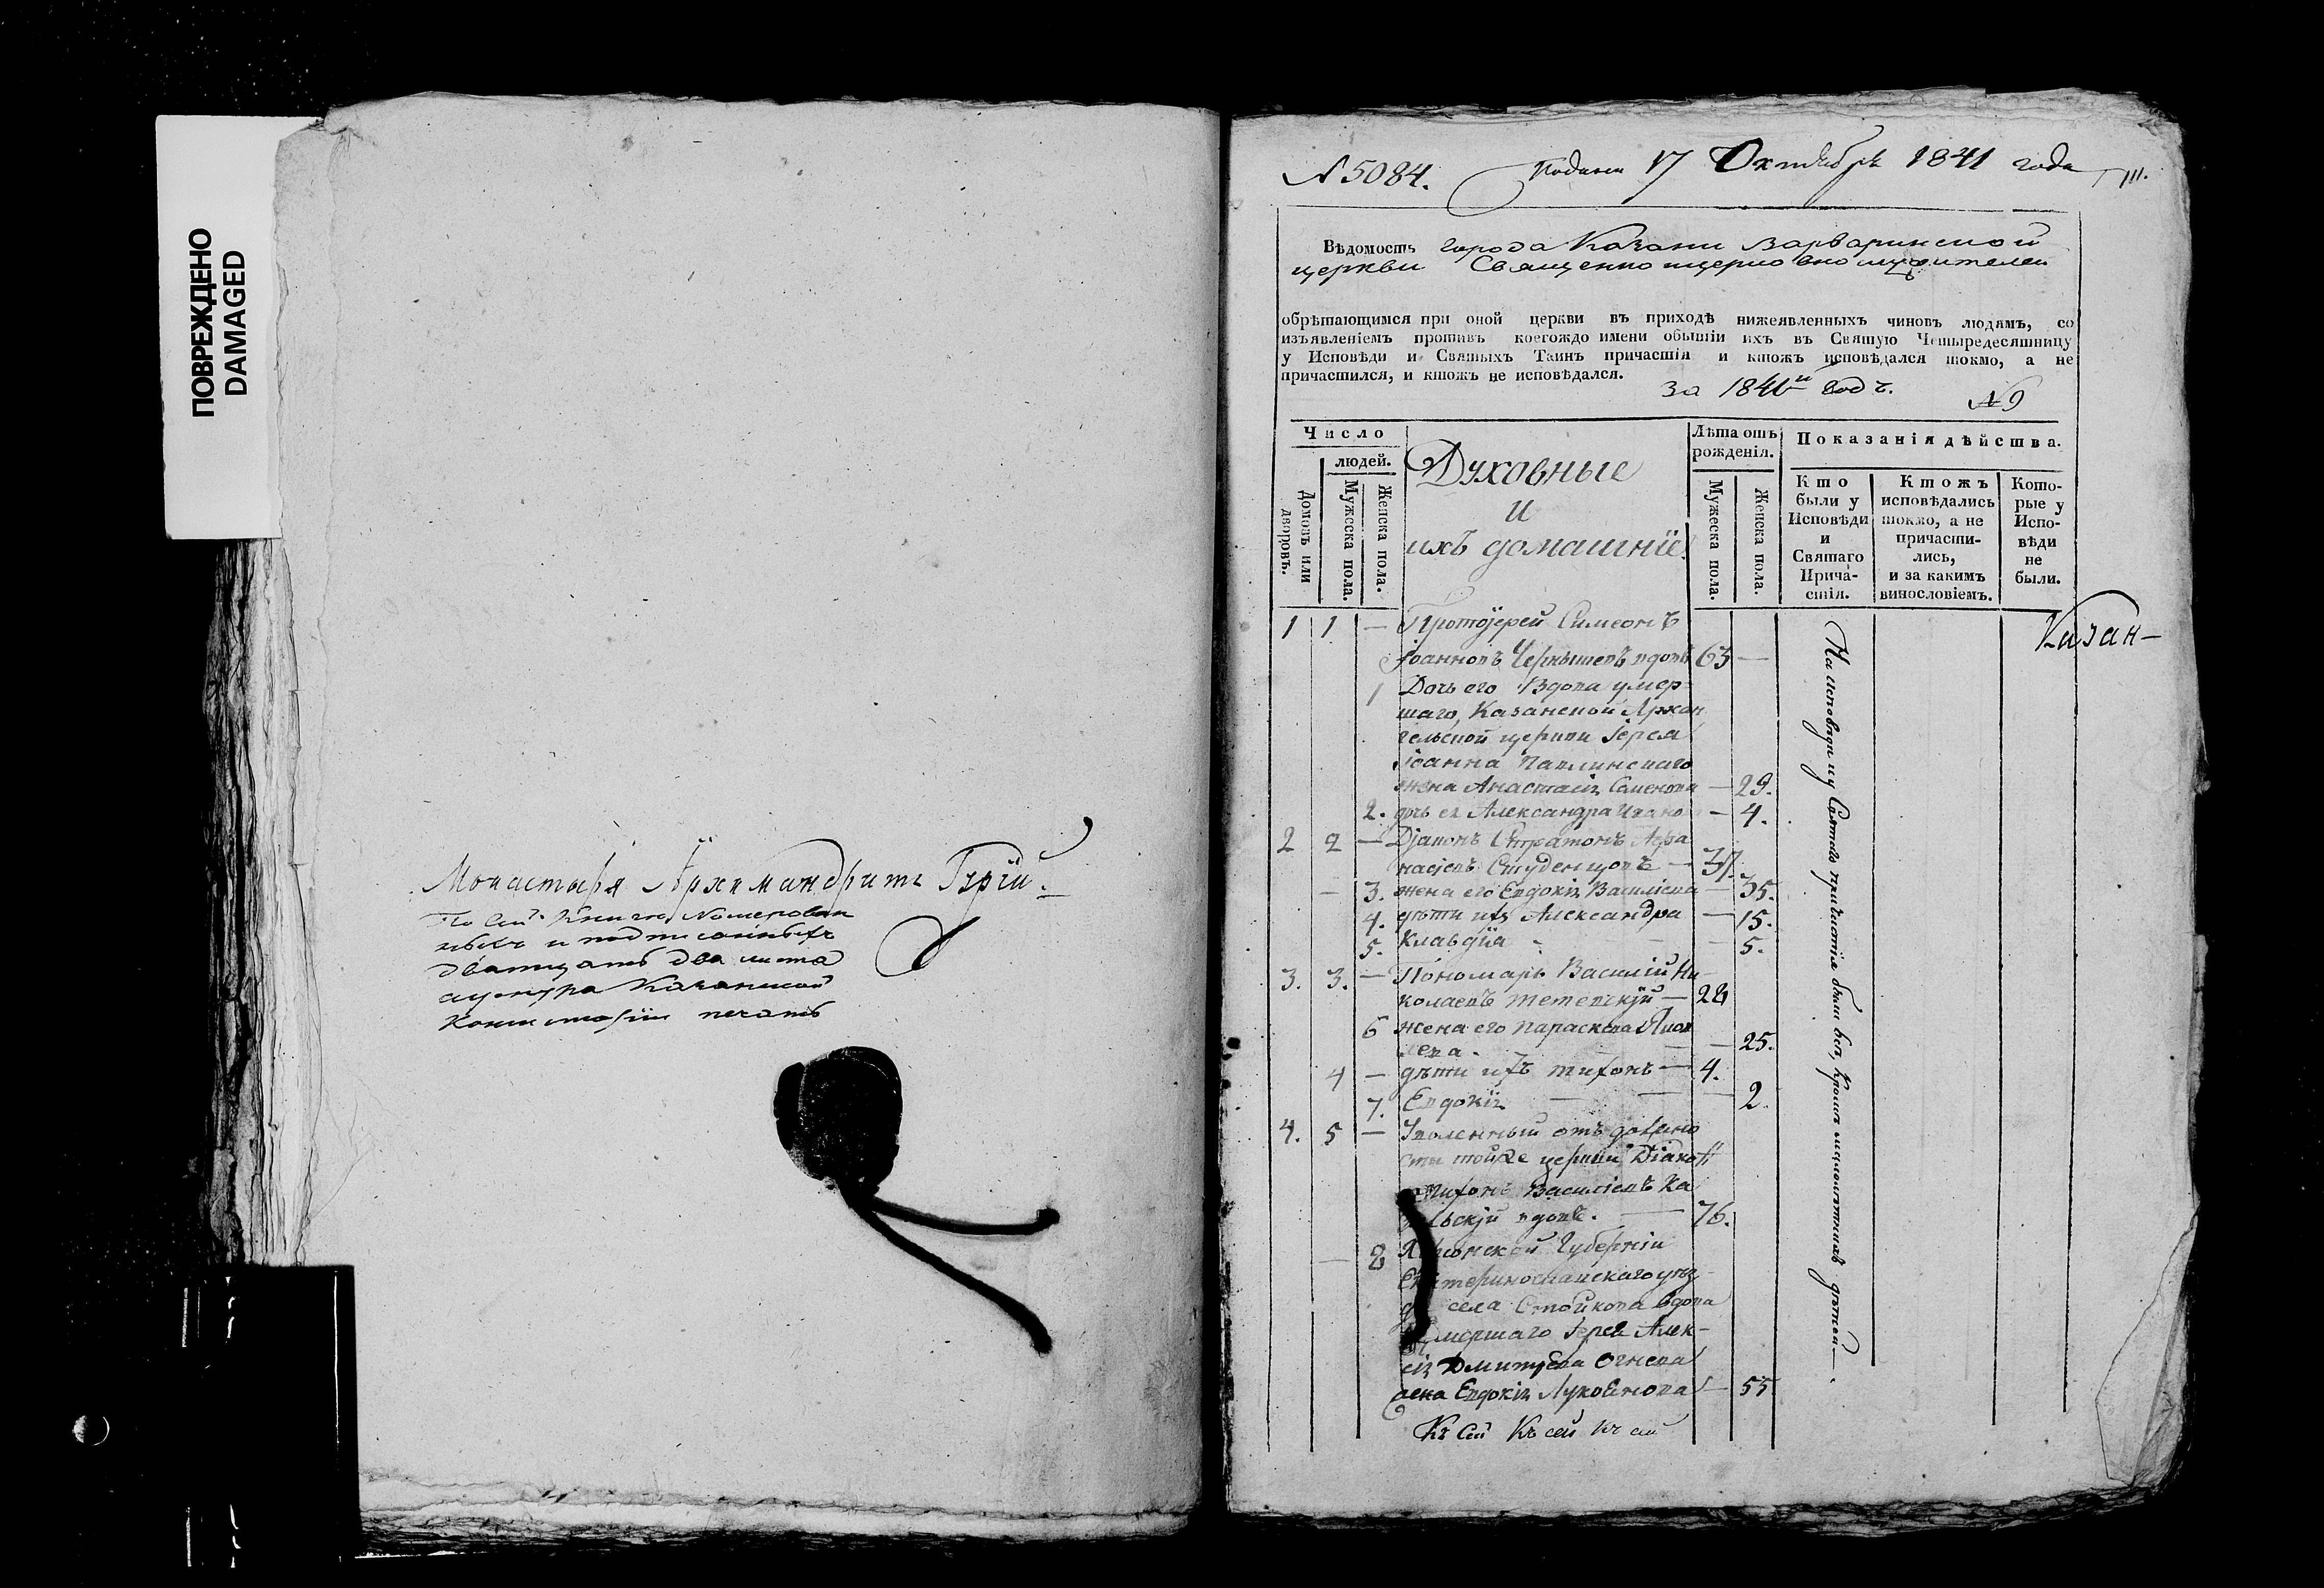 ПОВРЕЖДЕНО
DAMAGED
Монастыря Архимандритъ Гурій.
По сей книгѣ номерован
ныхъ и подписанныхъ
дватцать два листа
Казанской
Консисторіи печать
N 5084. Подана 17 Октября 1841 года
Вѣдомость города Казани Варваринской
церкви Священноцерковнослужителей
обрѣтающимся при оной церкви въ приходѣ нижеявленныхъ чиновъ людямъ, со
изъявленіемъ противъ коегождо имени обытіи ихъ въ Святую Четыредесятницу
у Исповѣди и Святыхъ Таинъ причастія и ктожъ исповѣдался токмо, а не
причастился, и ктожъ не исповѣдался.
за 1841й годъ.
N 9
Число
людей.
Домовъ или дворовъ.
Мужеска пола.
Женска пола.
Духовные
и
ихъ домашніе.
Лѣта отъ
рожденія.
Мужеска пола.
Женска пола.
Показанія дѣйства.
Кто
были у
Исповѣди
и
Святаго
Прича-
стія.
Ктожъ
исповѣдались
токмо, а не
причасти-
лись,
и за какимъ
винословіемъ.
Кото-
рые у
Испо-
вѣди
не
были.
Казан-
1 1 — Протоіерей Симеонъ
Іоанновъ Чернышевъ вдовъ 63 —
1 Дочь его вдова умер-
шаго, Казанской Архан
гельской церкви Іерея
Іоанна Павлинскаго
жена Анастасія Семенова — 29.
2. дочь ея Александра Ивано — 4.
2 2 — Діаконъ Стратонъ Афа
насіевъ Студенцовъ — 37.
— 3. жена его Евдокія Василіева — 35.
4. дѣти ихъ Александра — 15.
5. Клавдія — 5.
3. 3. — Пономарь Василій Ни-
колаевъ Тетевскій — 28
6 жена его Параскева
— 25.
4 — дѣти ихъ Тихонъ — 4.
7. Евдокія — 2.
4. 5 — Уволенный отъ должно
сти тойже церкви Діаконъ
Тихонъ Василіевъ Ка
вдовъ. — 76.
— 8 Херсонской Губерніи
Екатеринославскаго уѣз-
да села Стойкова вдова
умершаго Іерея Алек-
сія Дмитріева Огнева
жена Евдокія — 55
Къ сей Къ сей Къ сей
На исповѣди и у Святаго причастія были всѣ, кромѣ малолѣтнихъ дѣтей —.